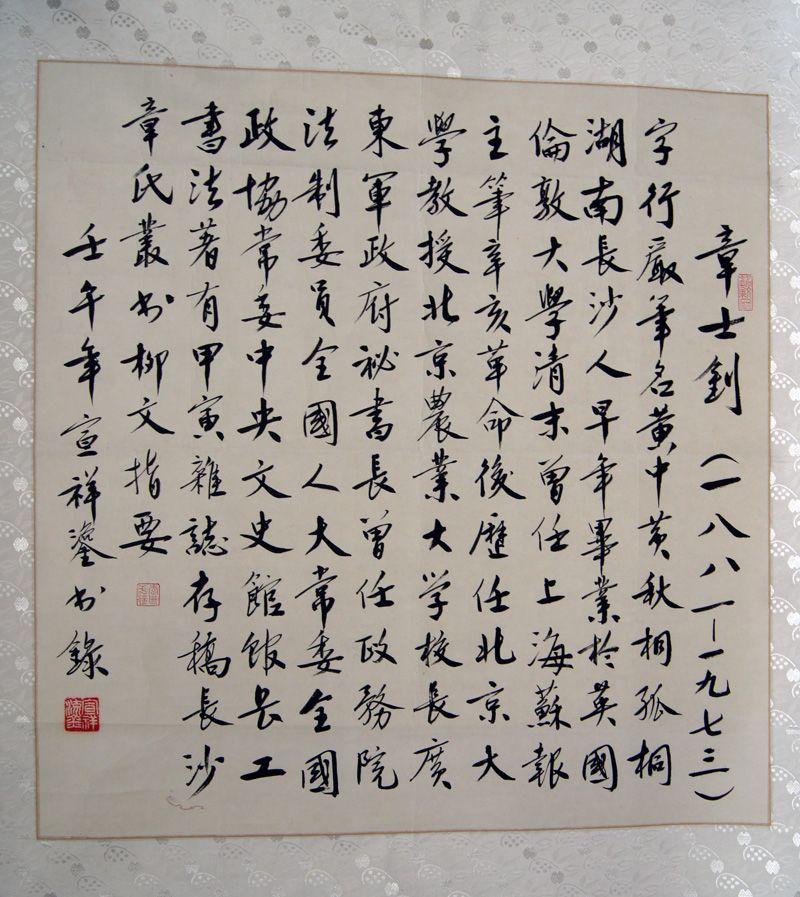 章士釗（一八八一—一九七三）
字行嚴筆名黃中黃秋桐孤桐
湖南長沙人早年畢業於英國
倫敦大學清末曾任上海蘇報
主筆辛亥革命後歷任北京大
學教授北京農業大学校長廣
東軍政府祕書長曾任政務院
法制委員全國人大常委全國
政協常委中央文史館館長工
書法著有甲寅雜誌存稿長沙
章氏叢书柳文指要
壬午年宣祥鎏书錄
宣祥鎏